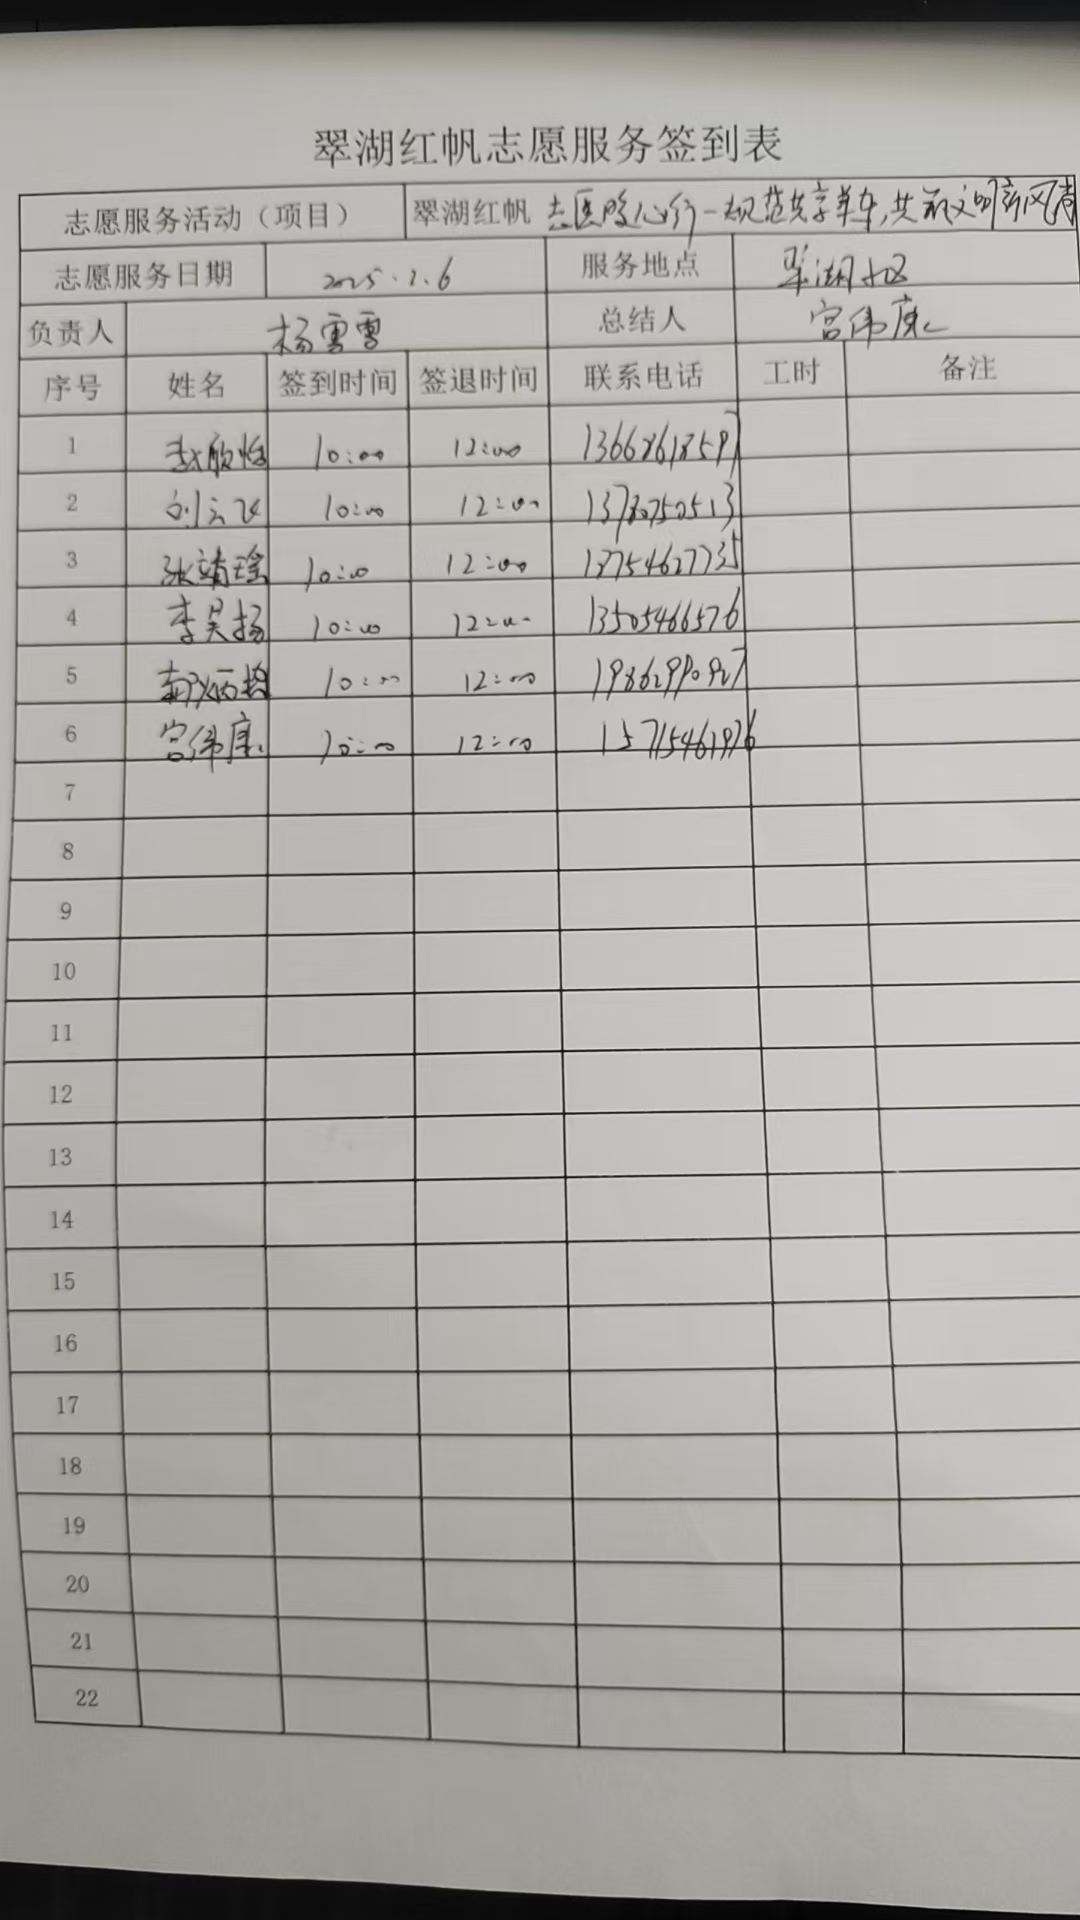 翠湖红帆志愿服务签到表
志愿服务活动（项目） 翠湖红帆 志愿暖心行—规范共享单车,共文明新风尚
志愿服务日期 2025.2.6 服务地点 翠湖社区
负责人 杨雪雪 总结人 宫伟康
序号 姓名 签到时间 签退时间 联系电话 工时 备注
1 赵欣怡 10:00 12:00 13668618597
2 刘云飞 10:00 12:00 13780750513
3 张靖瑶 10:00 12:00
4 李昊扬 10:00 12:00 13505466576
5 10:00 12:00
6 宫伟康 10:00 12:00 15715461976
7
8
9
10
11
12
13
14
15
16
17
18
19
20
21
22